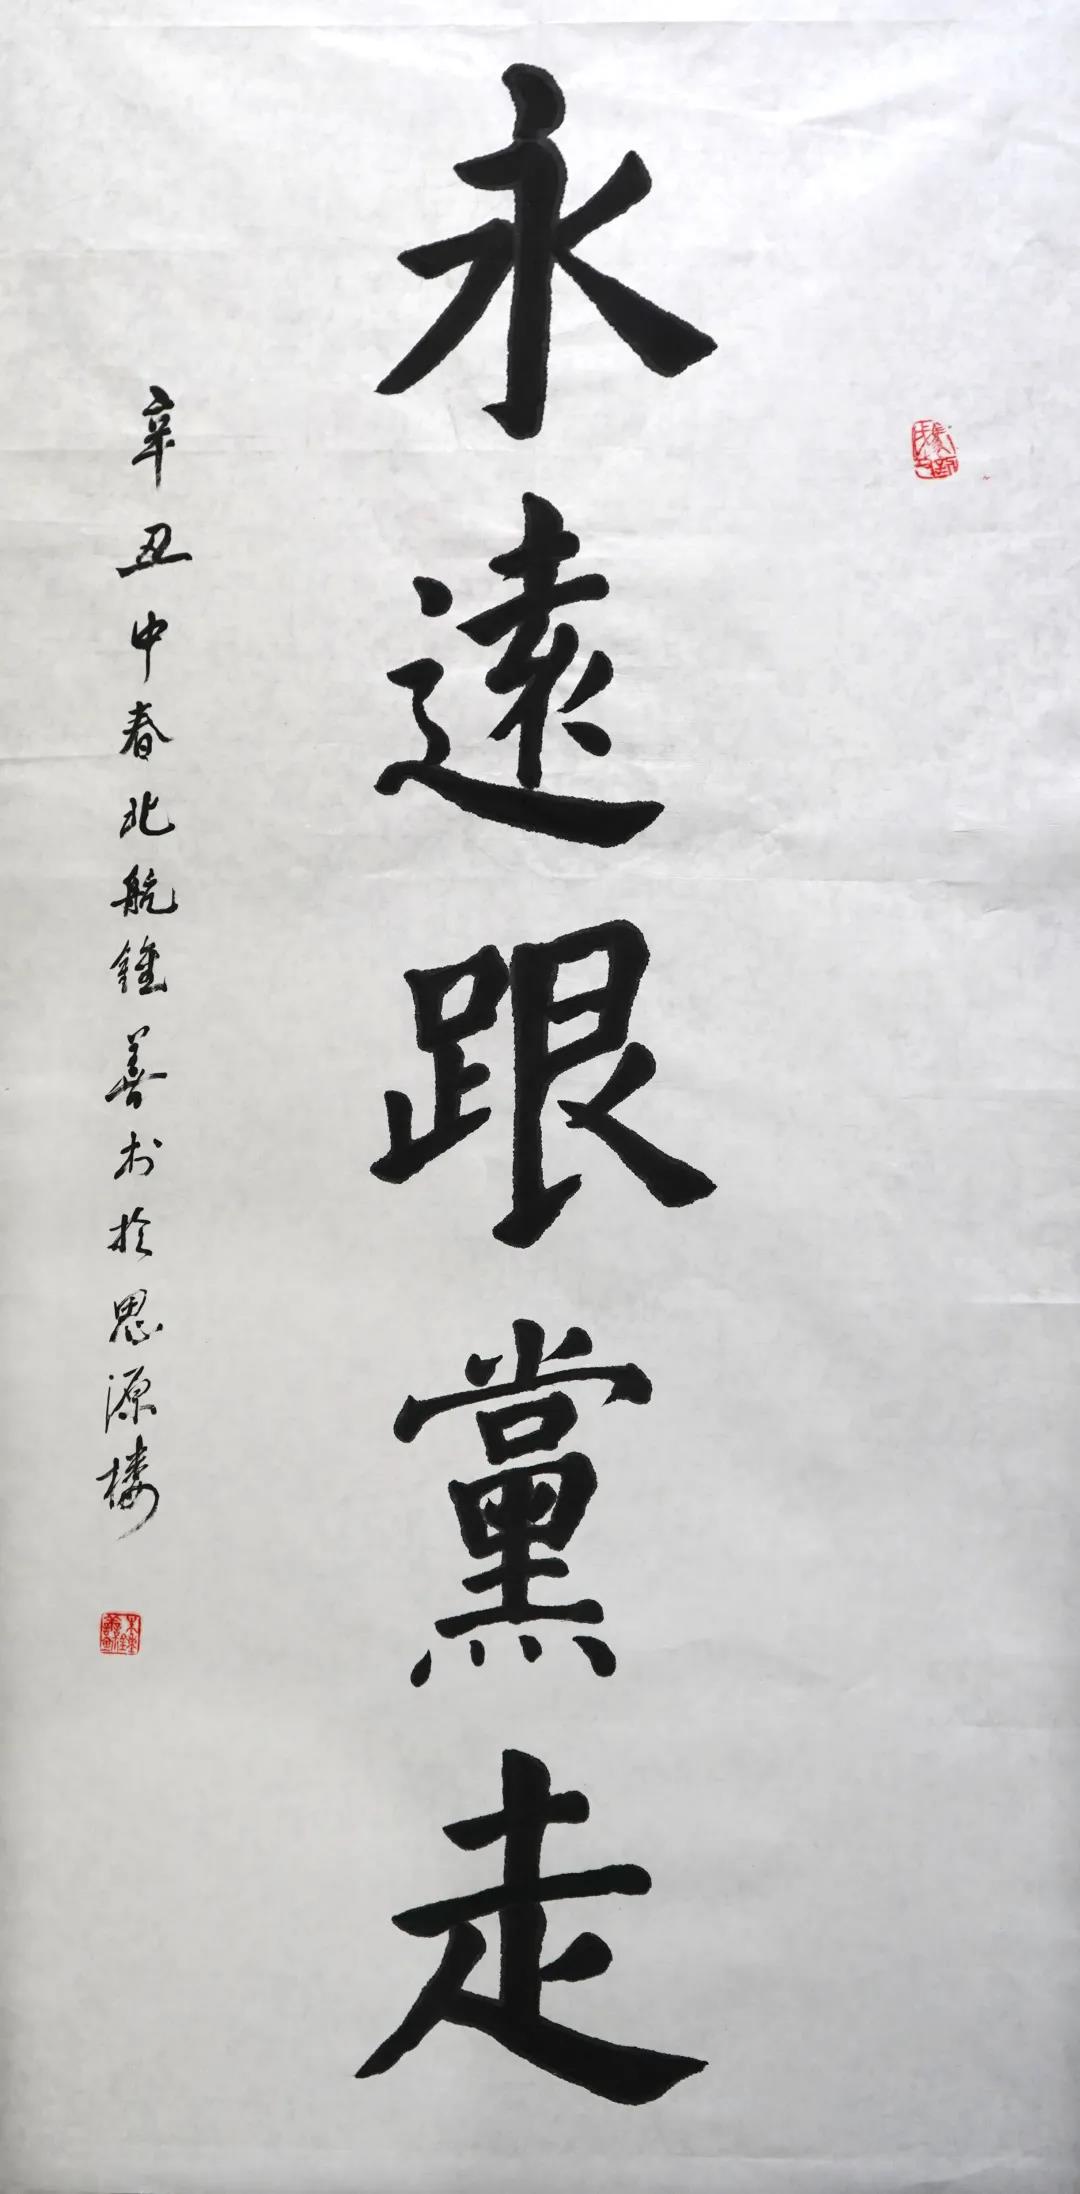 永遠跟黨走
辛丑中春北航鍾善书於思源楼